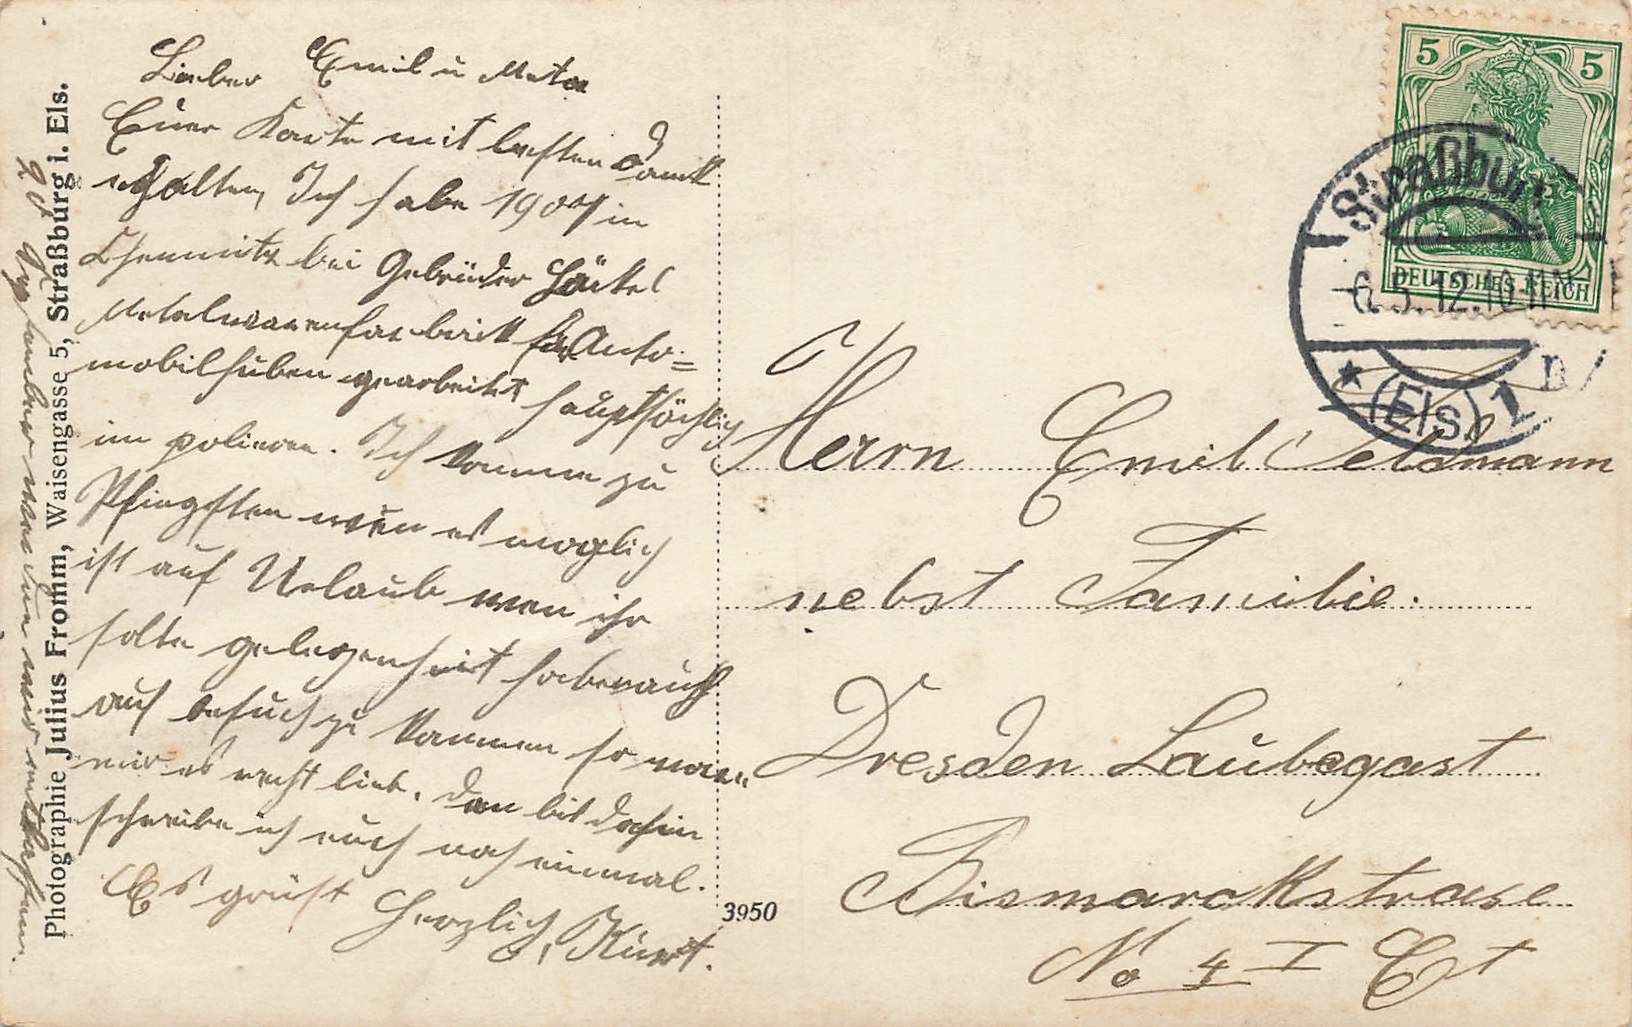 Lieber Emil u Meta
Euer Karte mit besten Dank
erhalten, Ich habe 1907 in
Chemnitz bei Gebrüder Häckel
Metalwarenfabrick für Auto=
mobilhuben gearbeitet hauptsächlig
im polieren. Ich komme zu
Pfingsten wen es moglich
ist auf Urlaub wen ihr
solte gelegenheit haben auch
auf besuch zu kommen so wäre
mir es recht lieb. Den bis dahin
schreibe ich euch noch einmal.
Es grüßt Herzlich, Kurt.
20
Photographie Julius Fromm, Waisengasse 5, Straßburg i. Els.
3950
5 5
DEUTSCHES REICH
Straßburg
6.5.12.10-11N
* (Els) 1
Herrn Emil Seldmann
nebst Familie.
Dresden Laubegast
Bismarckstrase
No 4 I Et